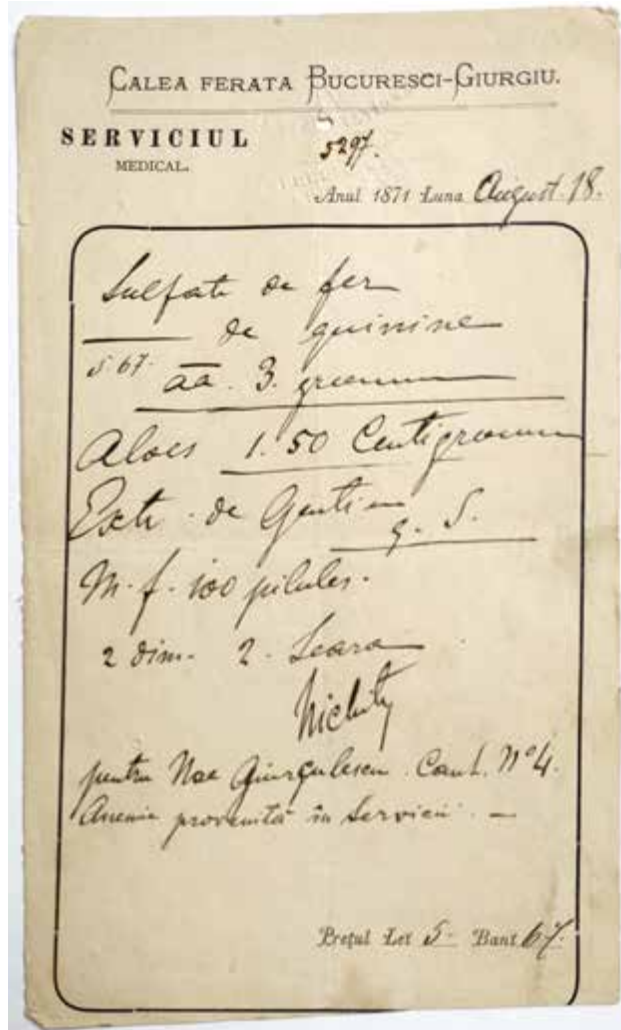 CALEA FERATA BUCURESCI-GIURGIU.
SERVICIUL
MEDICAL.
5297.
Anul 1871 Luna August 18.
Sulfate de fer
—— de quinine
5 67. aa. 3. gramm
Aloes 1.50 Centigramm
Extr. de Gentian
q. S.
M. f. 100 pilules.
2 dim. 2. Seara
pentru Nae Giurgulescu Cant. Nº 4.
Anemie provenită în Servicii. —
Prețul Lei 5 - Bani 67.